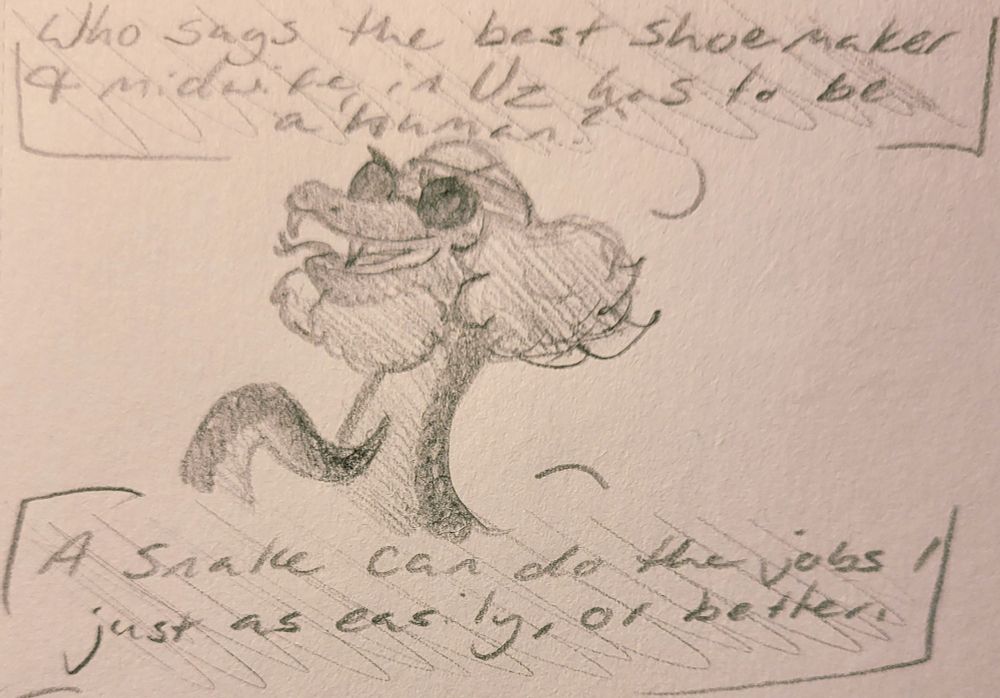 Who says the best shoemaker
& midwife in Uz has to be
a human?
A snake can do the jobs
just as easily, or better.